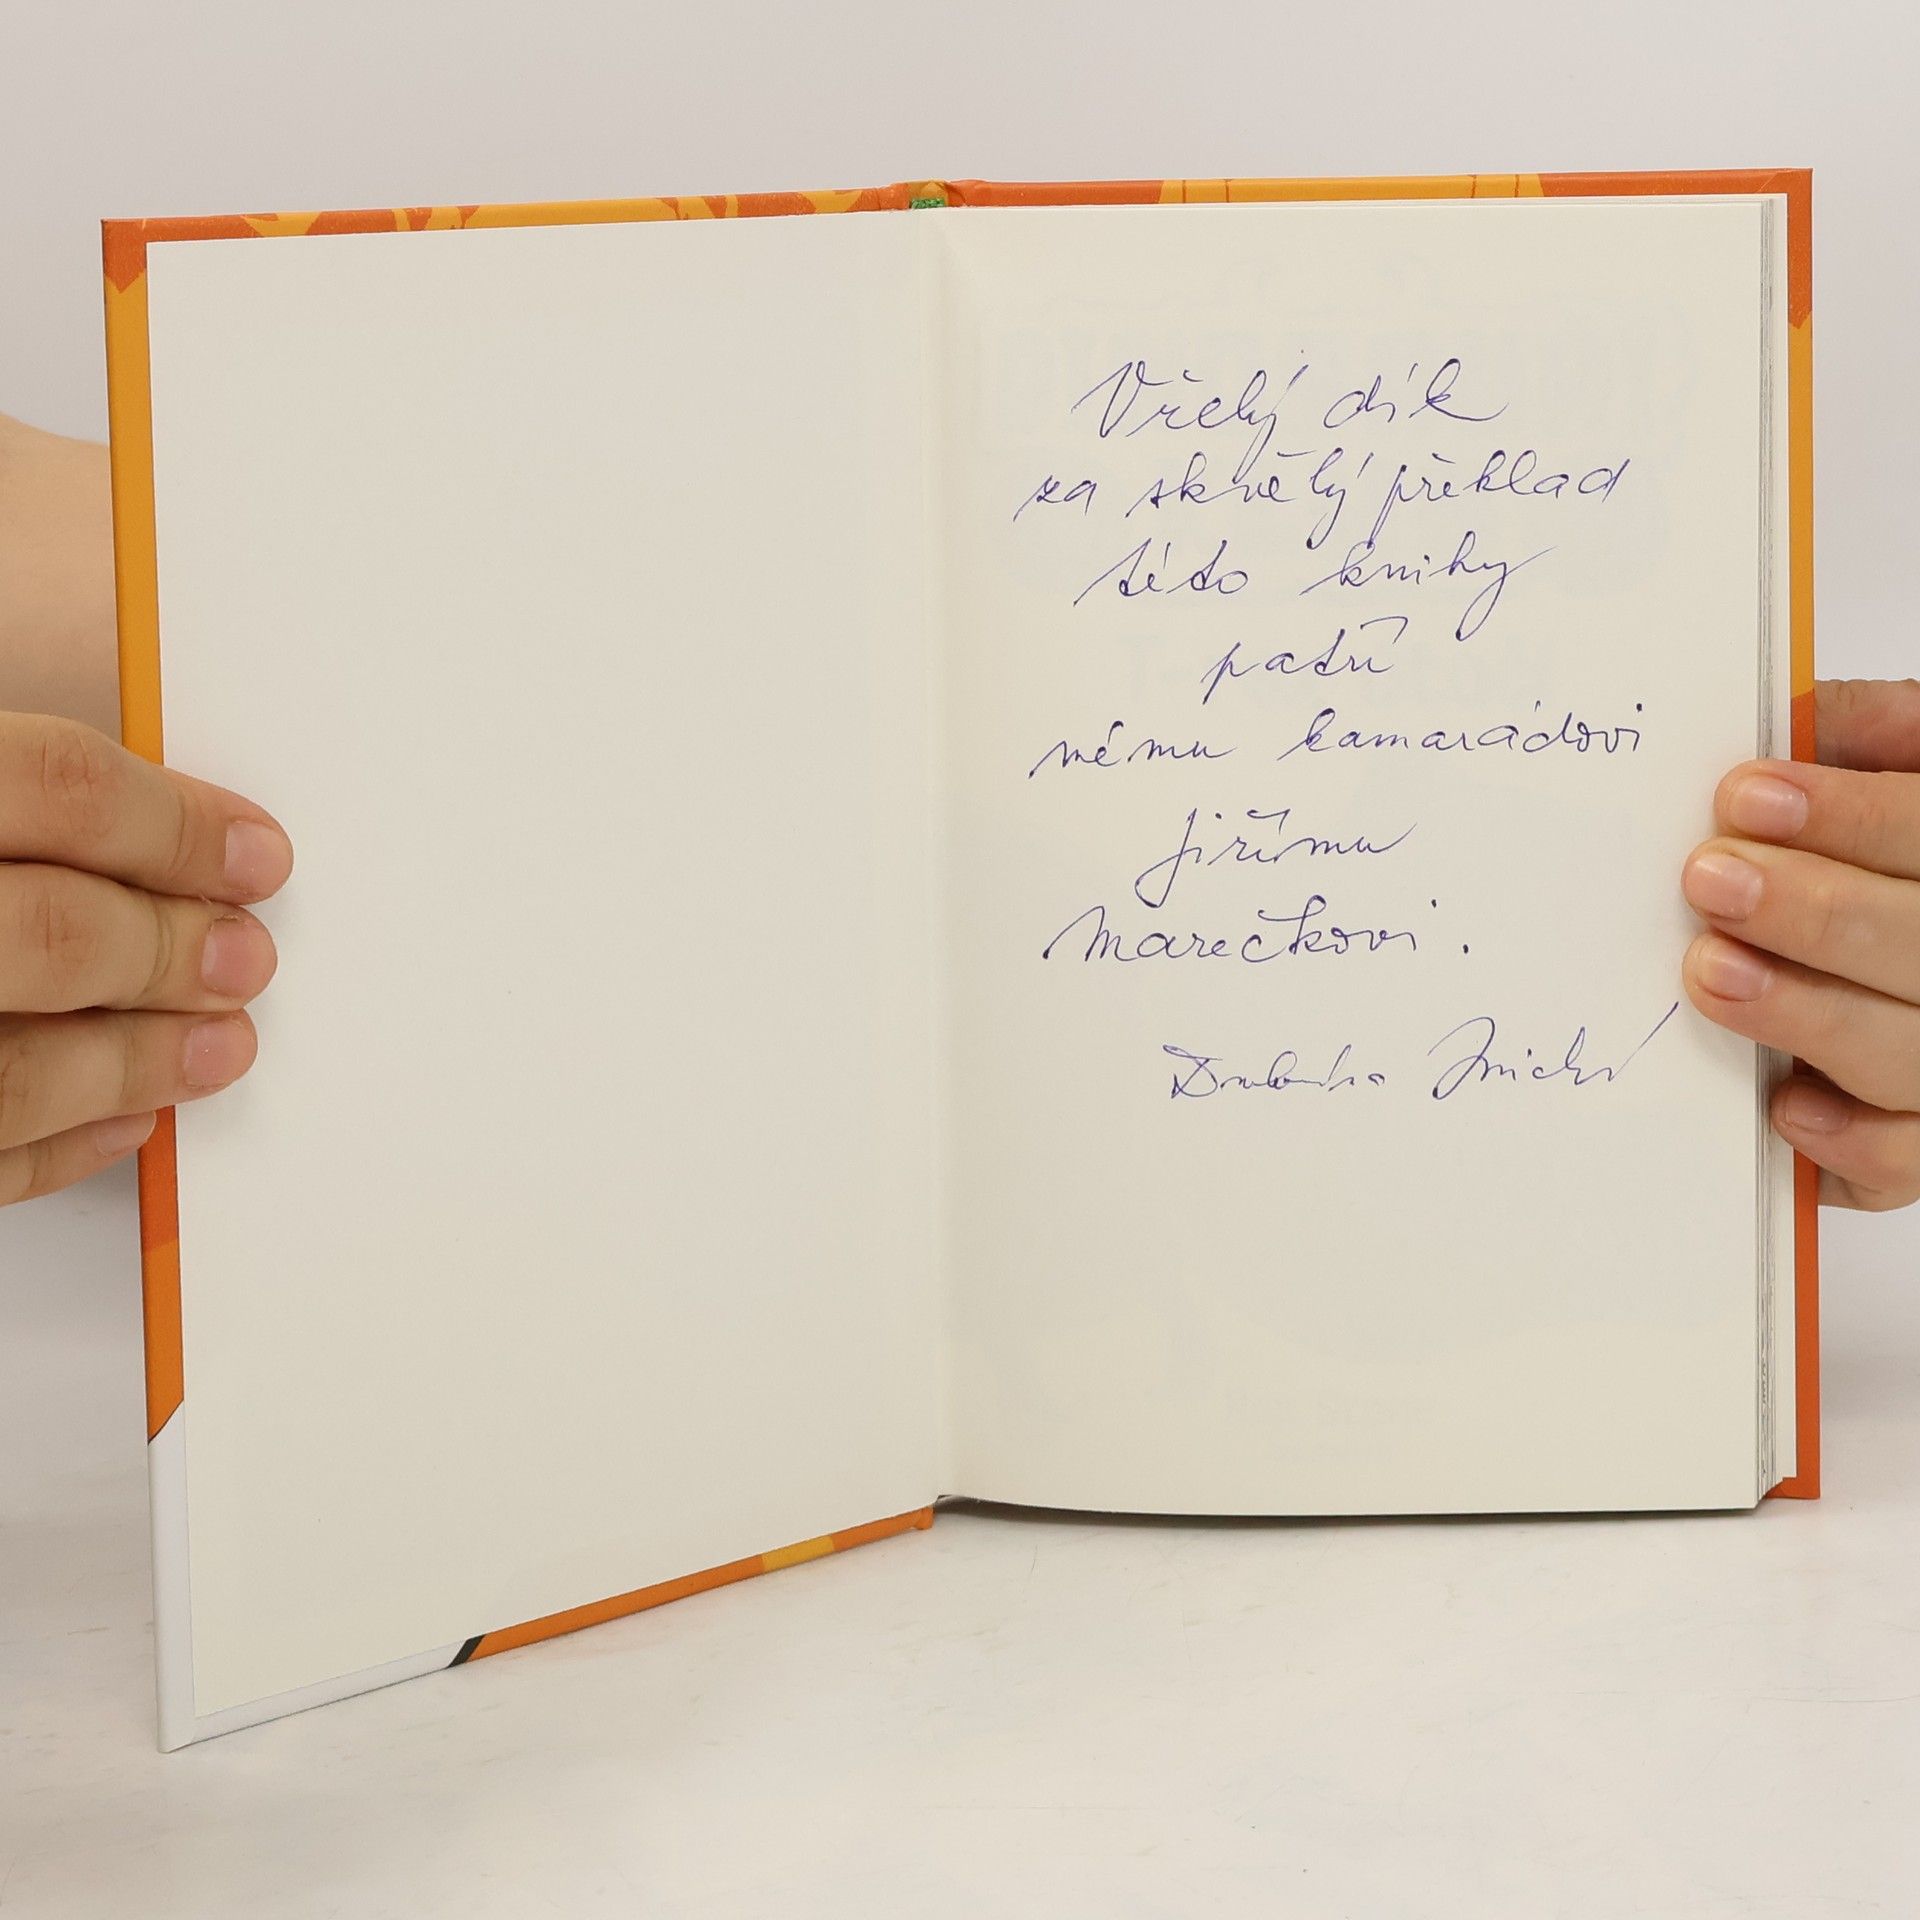 Vřelý dík
za skvělý překlad
této knihy
patří
mému kamarádovi
Jiřímu
Marečkovi.